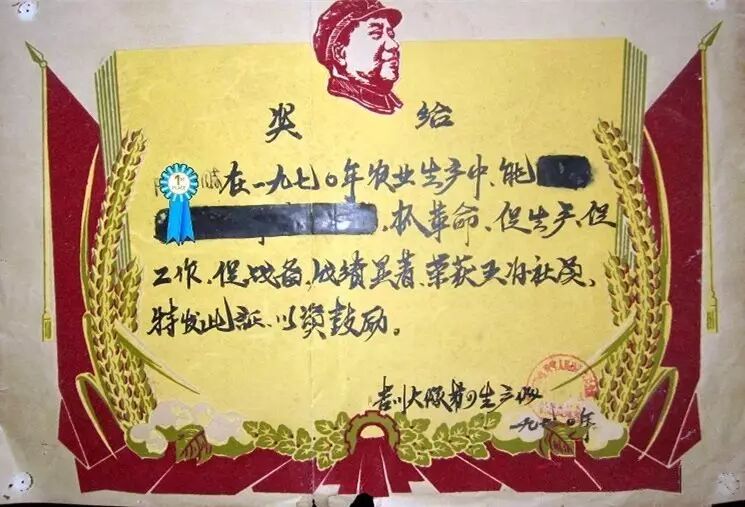 奖 给
在一九七〇年农业生产中,能
,抓革命、促生产、促
工作、促战备,成绩显著,荣获五好社员,
特发此证,以资鼓励。
吉川大队第四生产队
一九七〇年
1ST
PLACE